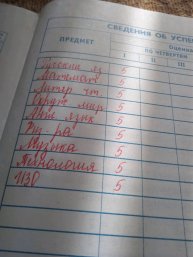 СВЕДЕНИЯ ОБ УСПЕ
ПРЕДМЕТ
Оценка
ПО ЧЕТВЕРТЯМ
I II III
Русский яз 5
Математ 5
Литер чт. 5
Окруж мир 5
Англ язык 5
Физ-ра 5
Музыка 5
Технология 5
ИЗО 5